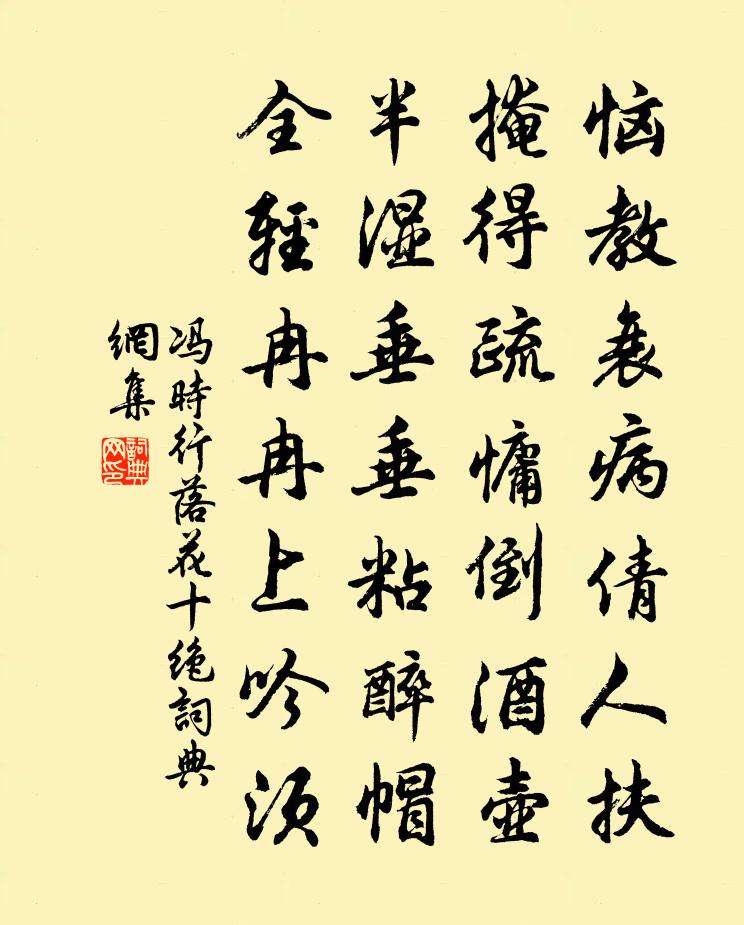 恼教衰病倩人扶
掩得疏慵倒酒壶
半湿垂垂粘醉帽
全轻冉冉上吟须
冯时行落花十绝词典
網集
詞典
网印